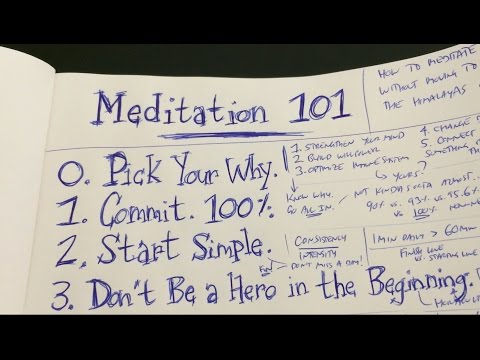 Meditation 101
HOW TO MEDITATE
WITHOUT MOVING TO
THE HIMALAYAS
0. Pick Your Why.
1. STRENGTHEN YOUR MIND
2. BUILD WILLPOWER
3. OPTIMIZE IMMUNE SYSTEM
4. CHANGE
5. CONNECT
SOMETHING
↳ YOURS?
KNOW WHY.
GO ALL IN.
NOT KINDA SORTA ALMOST
90% VS. 93% VS. 95.6%
VS. 100%
1. Commit. 100%.
2. Start Simple.
CONSISTENCY
INTENSITY
DON'T MISS A DAY!
1 MIN DAILY > 60 MIN
FINISH LINE
VS. STARTING LINE
3. Don't Be a Hero in the Beginning.